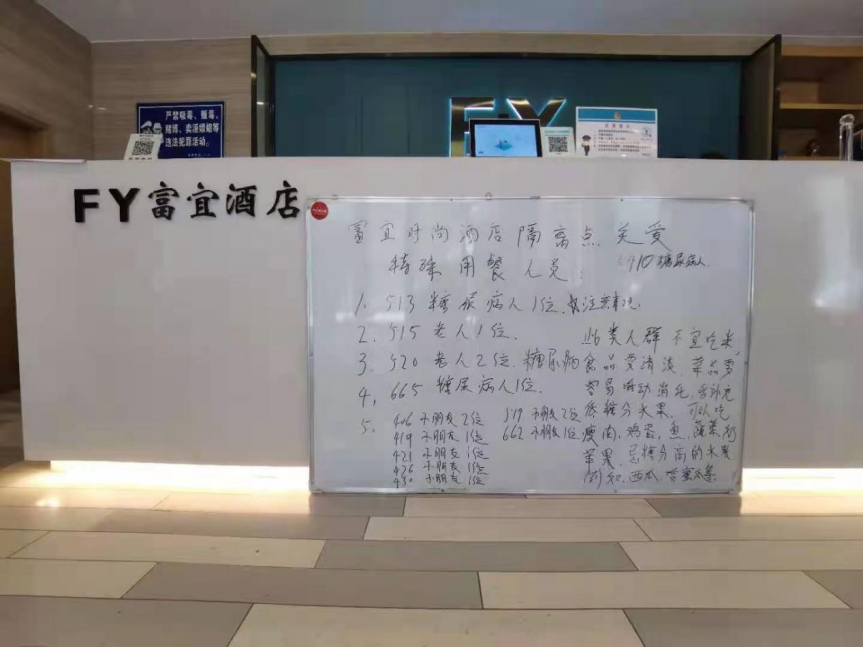 严禁吸毒、贩毒、
赌博、卖淫嫖娼等
违法犯罪活动。
FY
FY富宜酒店
富宜时尚酒店隔离点关爱
特殊用餐人员:
410糖尿病人
1. 513 糖尿病人1位.
2. 515 老人1位.
3. 520 老人2位. 糖尿病
4. 665 糖尿病人1位.
5. 406 小朋友2位
419 小朋友1位
421 小朋友1位
426 小朋友1位
430 小朋友1位
519 小朋友2位
662 小朋友1位
此类人群不宜吃米
食品受清淡,菜品要
容易嚼动消化,
低糖分水果,可以吃
瘦肉,鸡蛋,鱼,蔬菜
苹果.忌糖分高的水果
例如,西瓜,哈蜜瓜